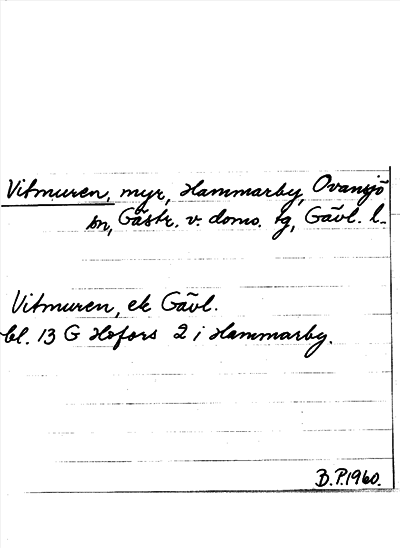 Vitmuren, myr, Hammarby, Ovansjö
sn, Gästr. v. doms. tg, Gävl. l.
Vitmuren, ek Gävl.
bl. 13 G Hofors 2 i Hammarby.
B.P.1960.